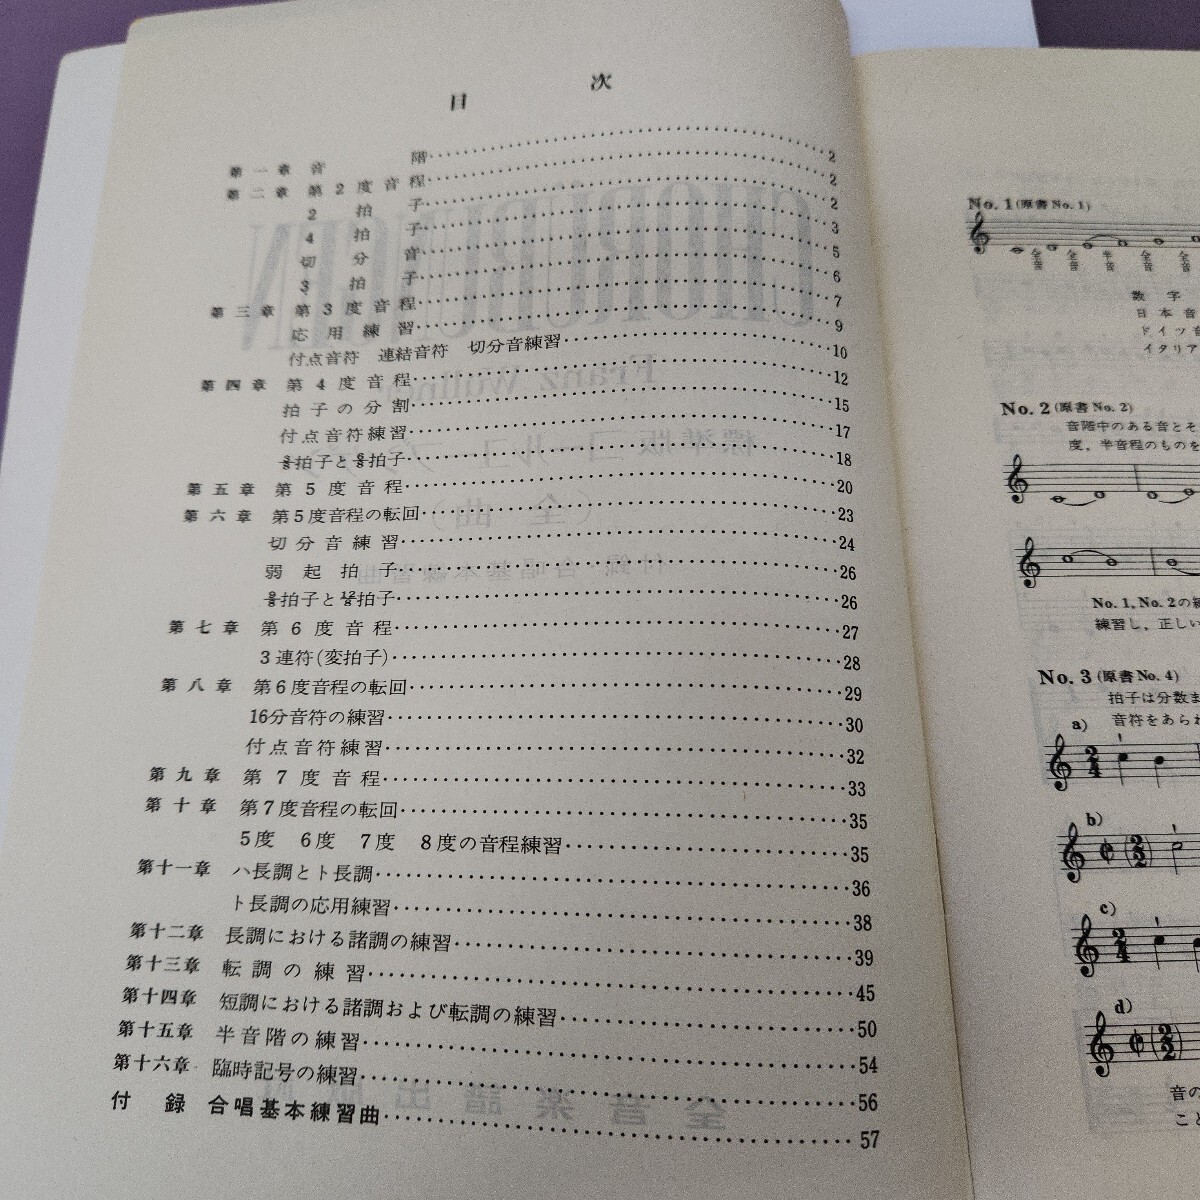 目次
第一章 音階 2
第二章 第2度音程 2
2拍子 2
4拍子 3
切分音 5
3拍子 6
第三章 第3度音程 7
応用練習 9
付点音符 連結音符 切分音練習 10
第四章 第4度音程 12
拍子の分割 15
付点音符練習 17
拍子と 拍子 18
第五章 第5度音程 20
第六章 第5度音程の転回 23
切分音練習 24
弱起拍子 26
拍子と 拍子 26
第七章 第6度音程 27
3連符(変拍子) 28
第八章 第6度音程の転回 29
16分音符の練習 30
付点音符練習 32
第九章 第7度音程 33
第十章 第7度音程の転回 35
5度 6度 7度 8度の音程練習 35
第十一章 ハ長調とト長調 36
ト長調の応用練習 38
第十二章 長調における諸調の練習 39
第十三章 転調の練習 45
第十四章 短調における諸調および転調の練習 50
第十五章 半音階の練習 54
第十六章 臨時記号の練習 56
付録 合唱基本練習曲 57
No. 1 (原書 No. 1)
全音 全音 半音 全音 全音
数字
日本音
ドイツ音
イタリア
No. 2 (原書 No. 2)
音階中のある音とそ
度，半音程のものを
No. 1, No. 2の練
練習し，正しい
No. 3 (原書 No. 4)
拍子は分数ま
音符をあられ
a)
b)
c)
d)
音の
こと